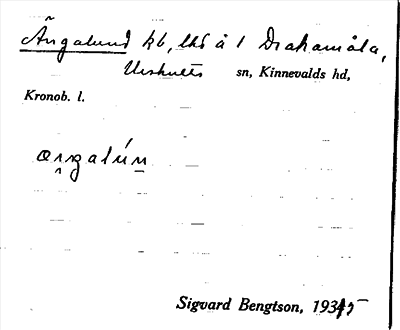 Ängalund kb, lhs å 1 Drakamåla,
Urshults sn, Kinnevalds hd,
Kronob. l.
æŋgalún
Sigvard Bengtson, 1935